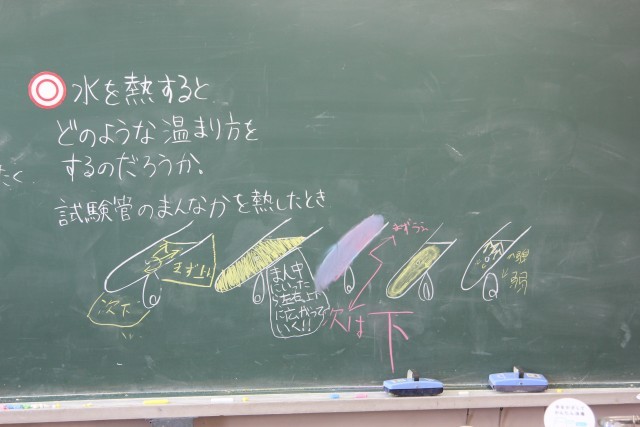 水を熱すると
どのような温まり方を
するのだろうか.
たく
試験管のまんなかを熱したとき
まず上
次下
まん中
にいった
ら左右上下
に広がって
いく!!
まずうえ
次は下
弱